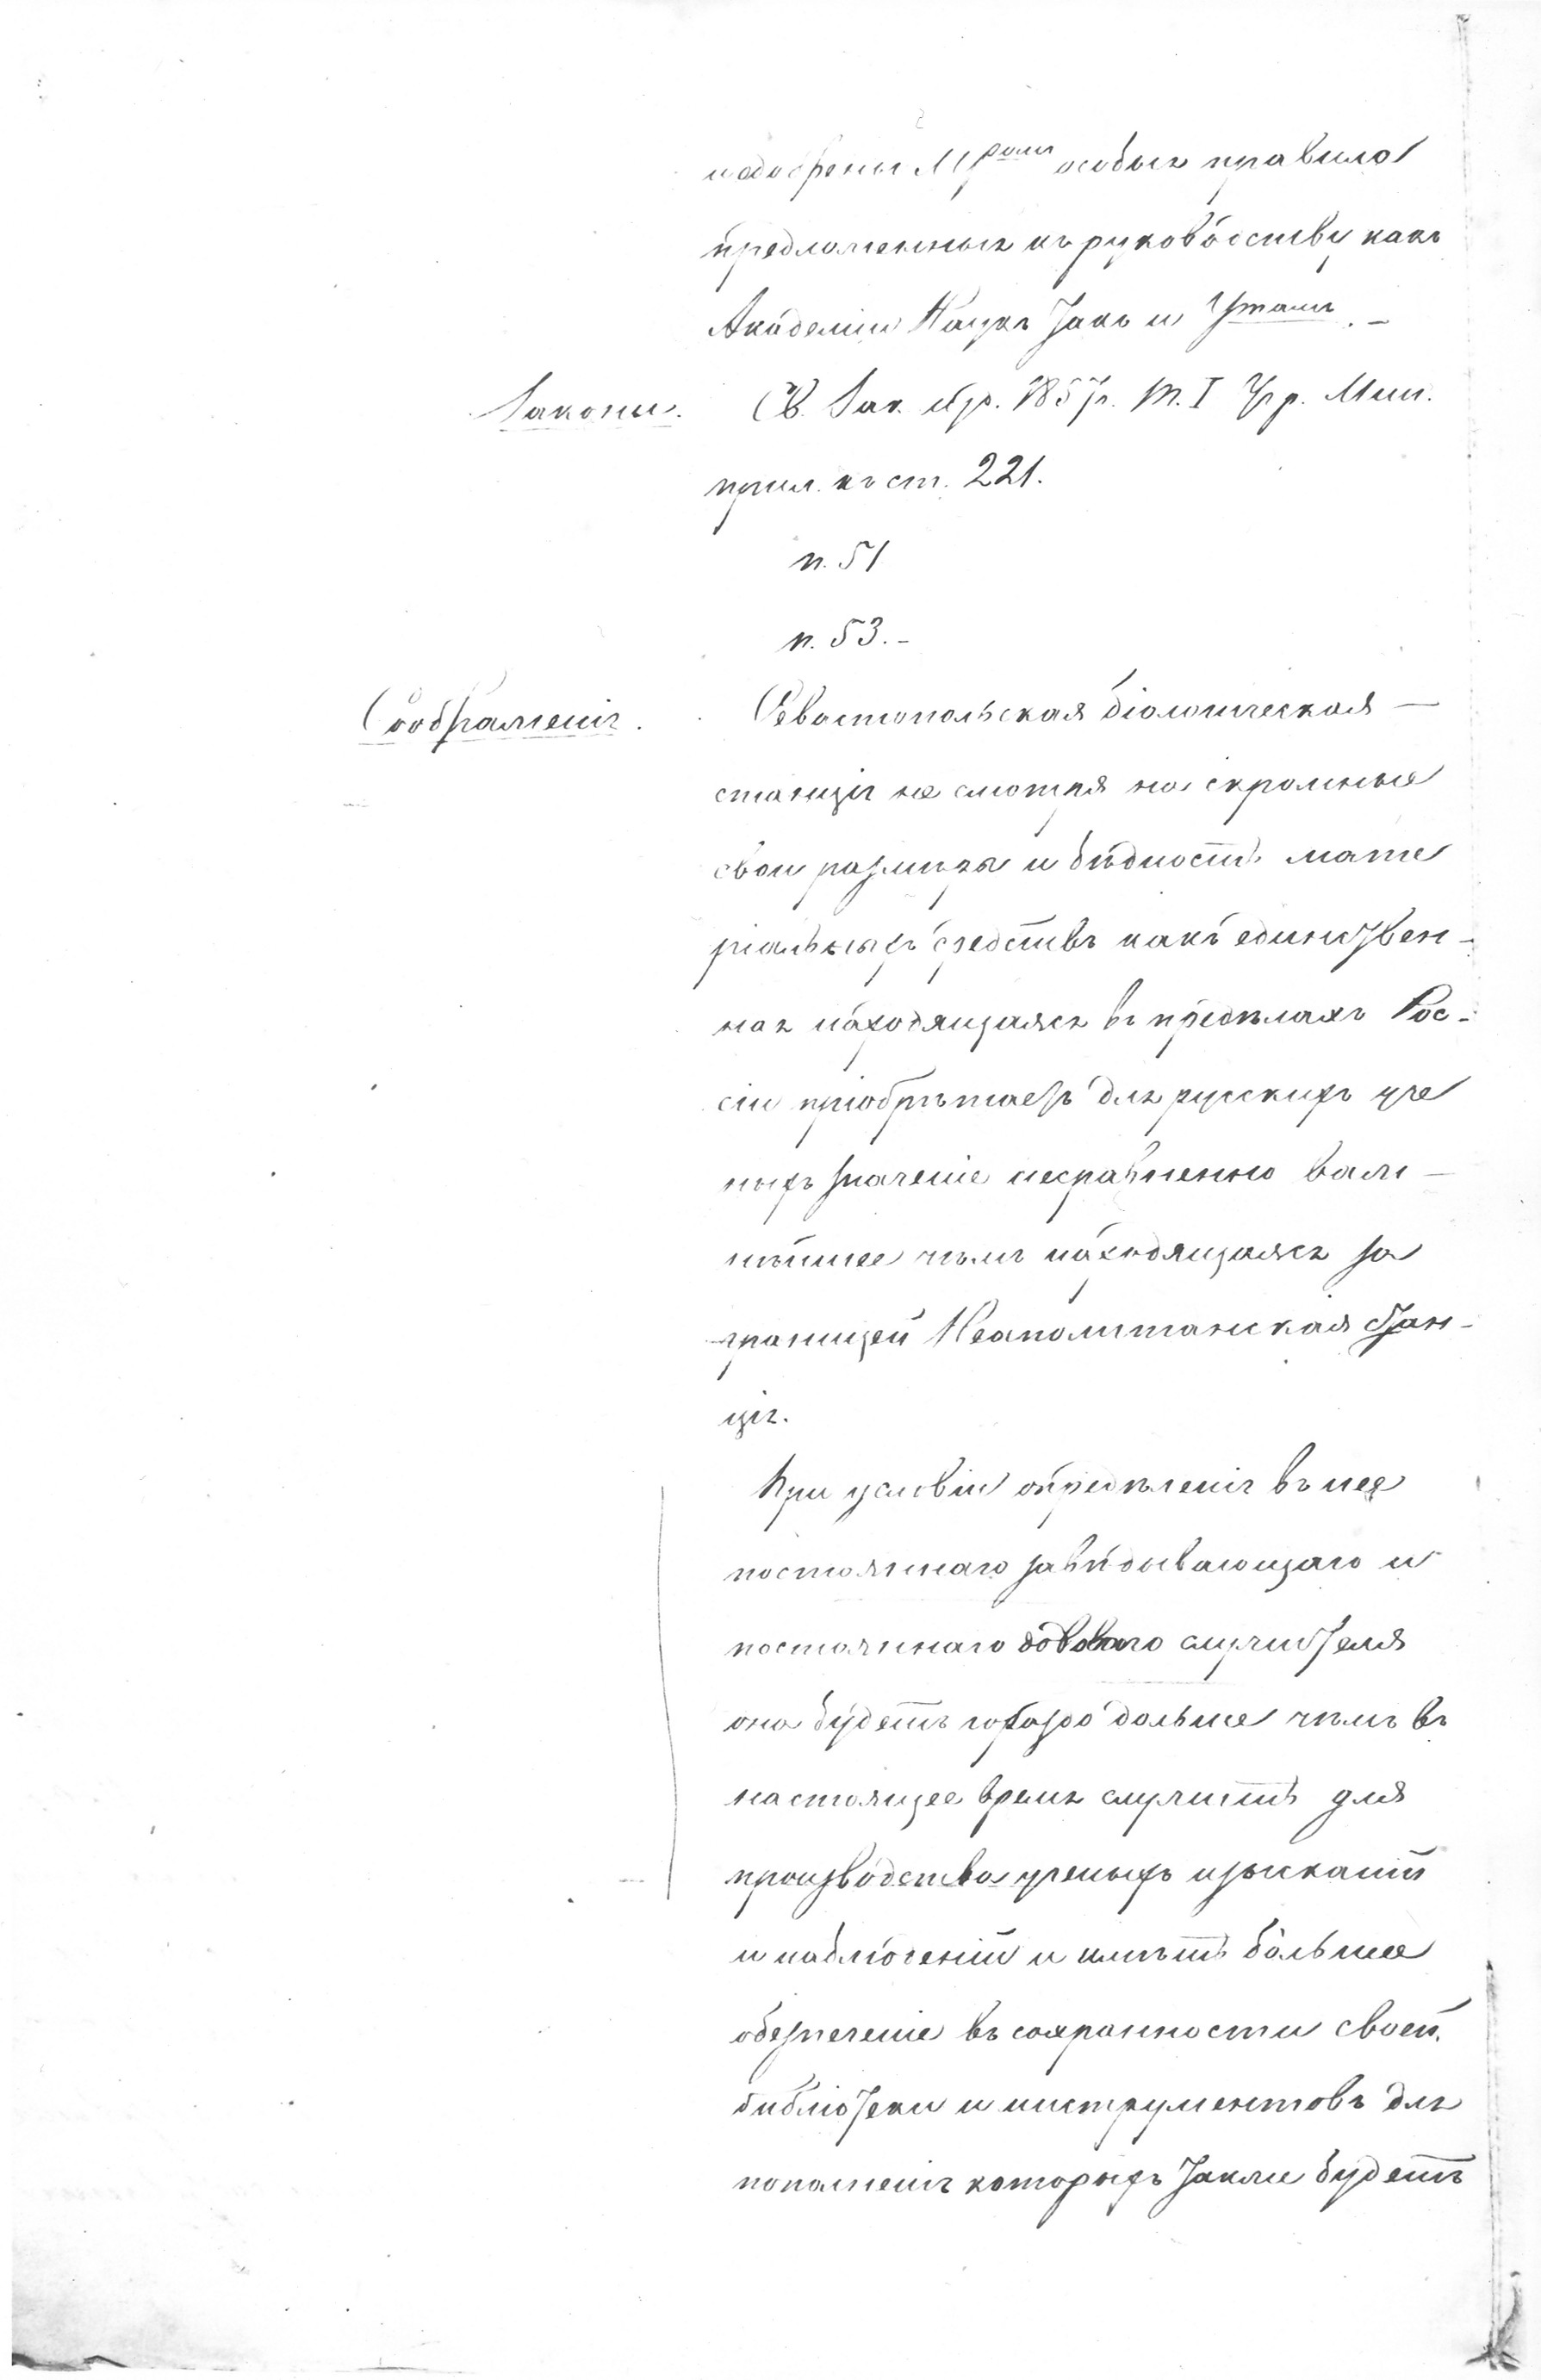 и одобрены М^ромъ особыя правила
предложенныя къ руководству какъ
Академіи Наукъ такъ и У^тамъ. –
Законы. Св. Зак. изд. 1857 г. Т. I Учр. Мин.
прил. къ ст. 221.
п. 51
п. 53. –
Соображенія. Севастопольская біологическая –
станція не смотря на скромные
свои размѣры и бѣдность мате
ріальныхъ средствъ какъ единствен-
ная находящаяся въ предѣлахъ Рос-
сіи пріобрѣтаетъ для русскихъ уче
ныхъ значеніе несравненно важ –
нѣйшее чѣмъ находящаяся за
границей Неаполитанская стан-
ція.
При условіи опредѣленія въ нее
постояннаго завѣдывающаго и
постояннаго служителя
она будетъ гораздо дольше чѣмъ въ
настоящее время служить для
производства ученыхъ изысканій
и наблюденій и имѣть больше
обезпеченіе въ сохранности своей
библіотеки и инструментовъ для
пополненія которыхъ также будетъ